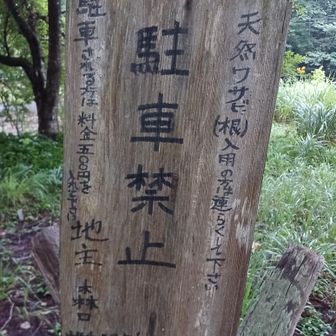 天然ワサビ(根)入用の方は連らくして下さい
駐車禁止
駐車される方は料金五〇〇円を
地主 森口